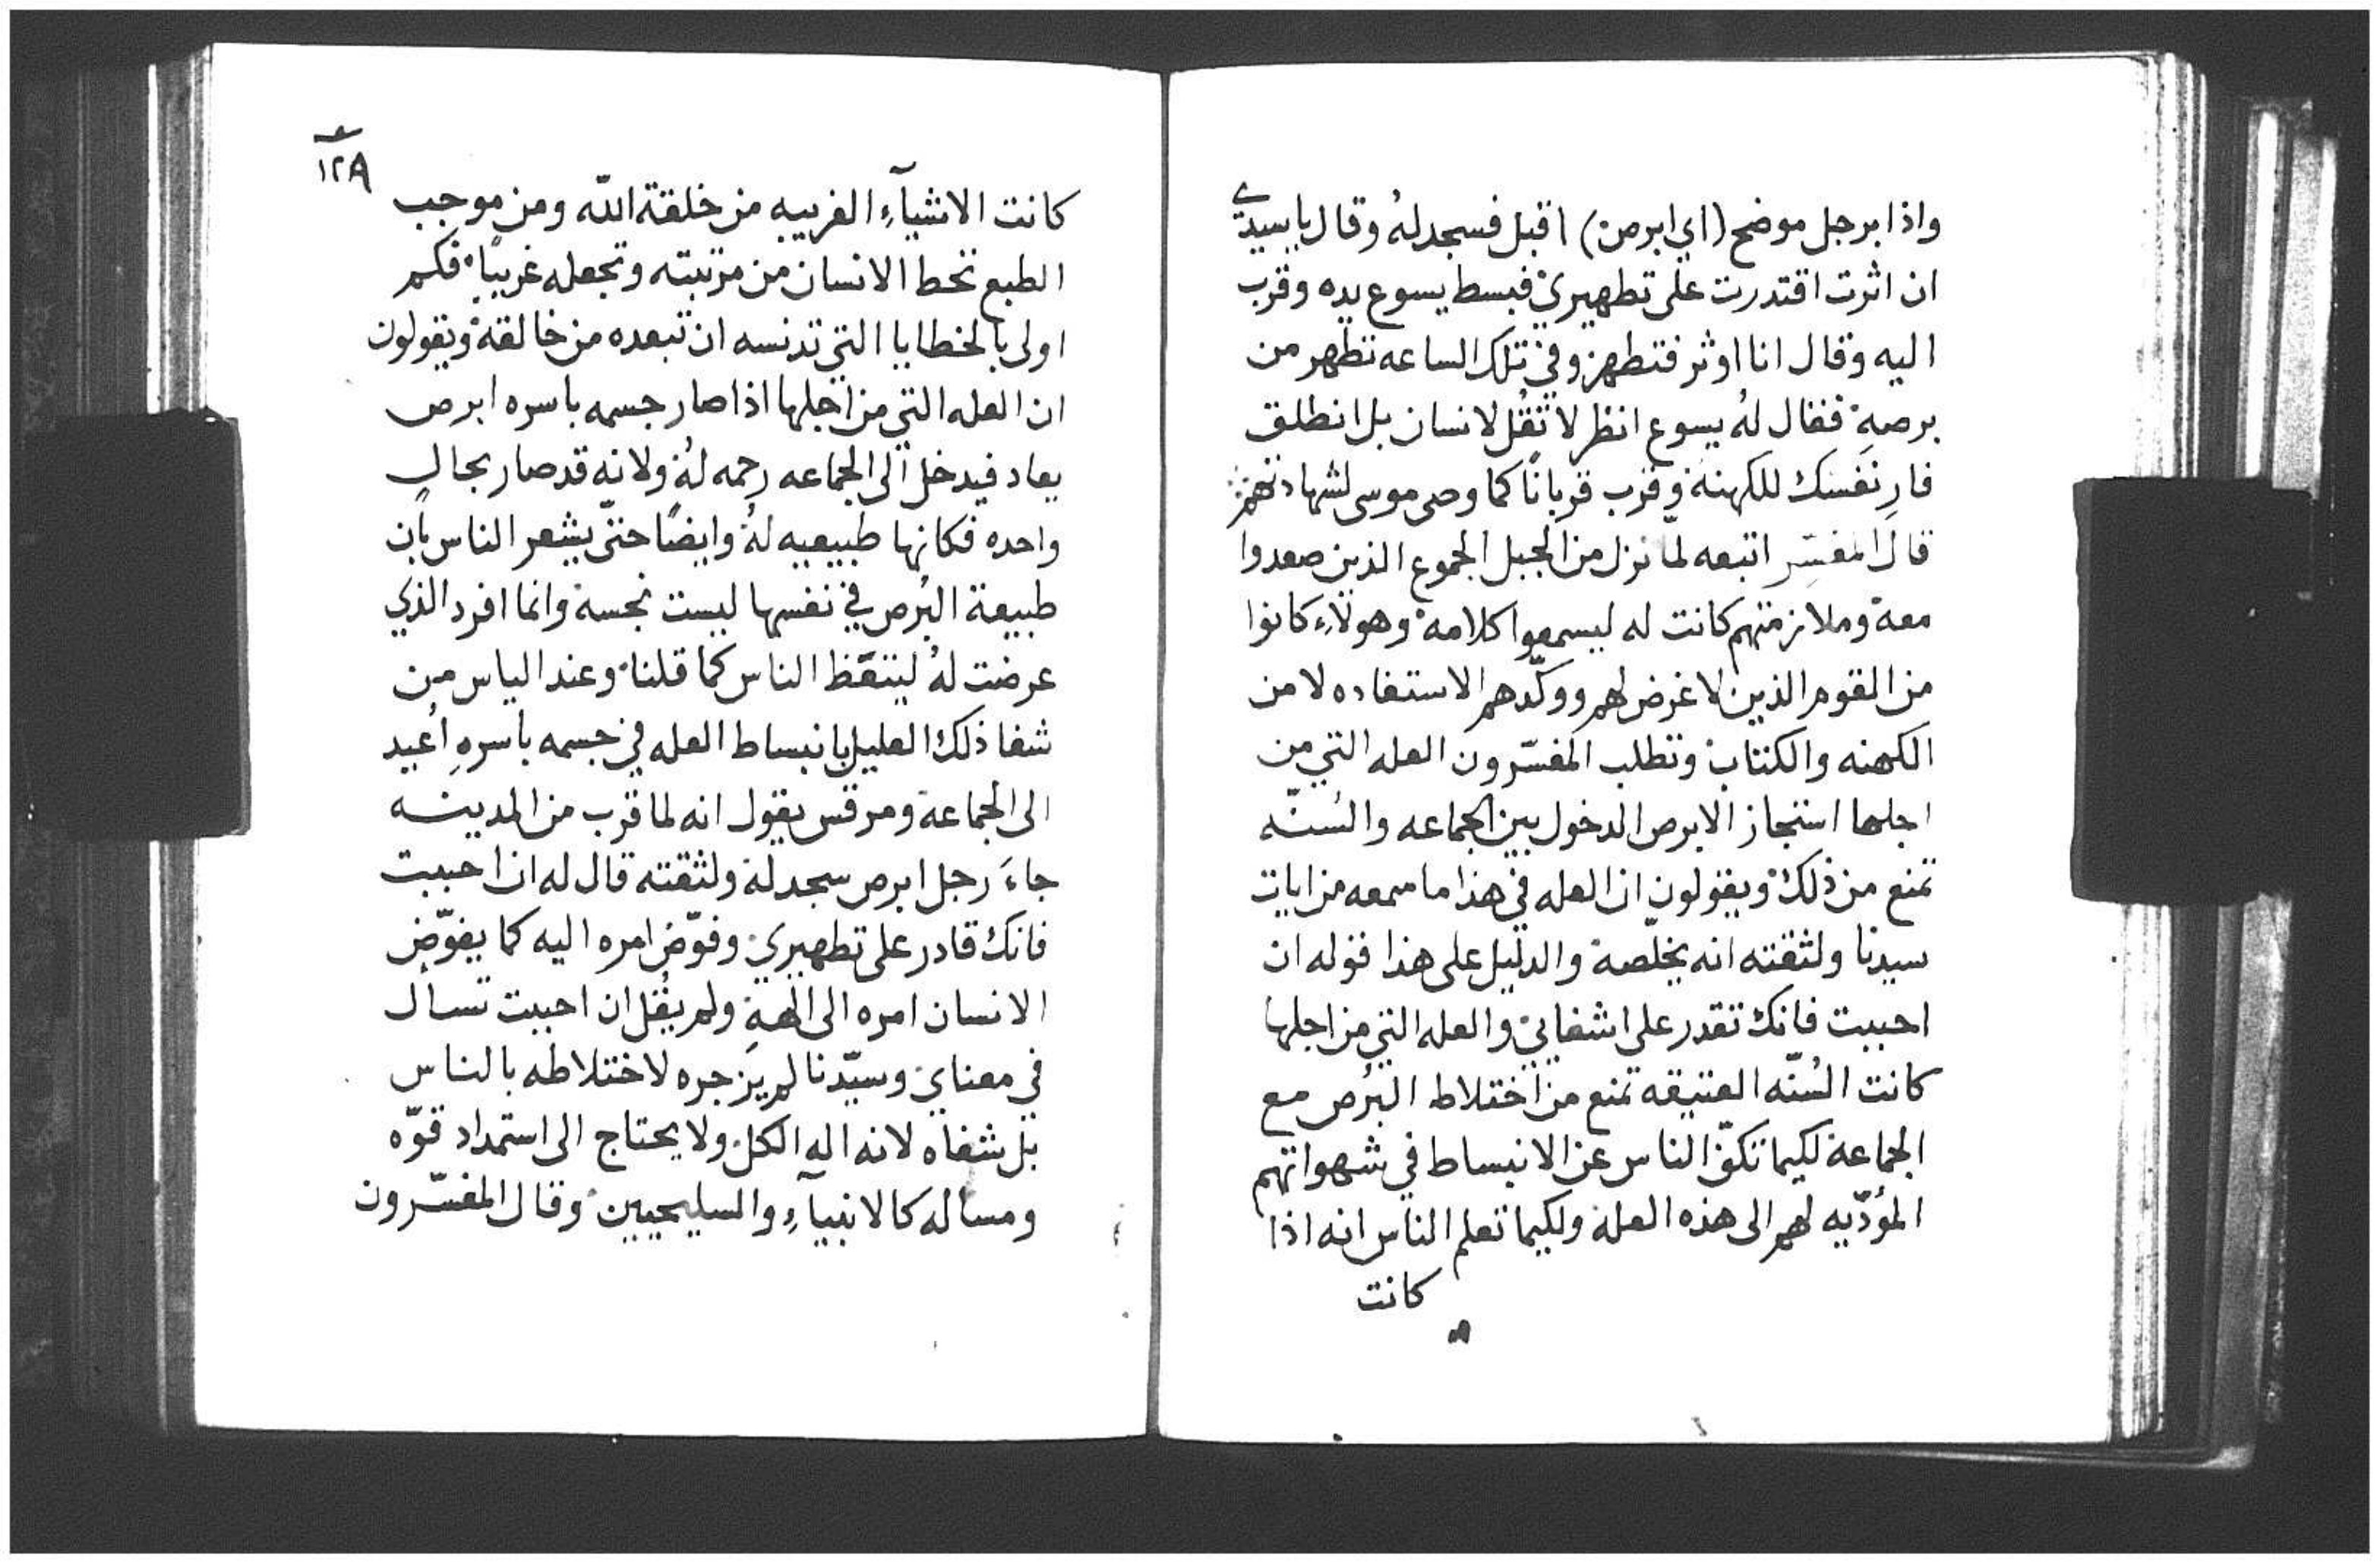 واذا برجل موضح (اي ابرص) اقبل فسجد لهُ وقال يا سيدي
ان اثرت اقتدرت على تطهيري فبسط يسوع يده وقرب
اليه وقال انا اوثر فتطهر وفي تلك الساعه تطهر من
برصهِ فقال لهُ يسوع انظر لا تقُل لانسان بل انطلق
فارِ نفسَك للكهنة وقرب قربانًا كما وصى موسى لشهادتهم
قال المفسِّر اتبعه لمّا نزل من الجبل الجموع الذين صعدوا
معهُ وملازمتهم كانت له ليسمعوا كلامه وهولآءِ كانوا
من القوم الذين لا غرض لهم ووكّدهم الاستفاده لا من
الكهنه والكتاب وتطلب المفسّرون العله التي من
اجلها استجاز الابرص الدخول بين الجماعه والسُنّه
تمنع من ذلك ويقولون ان العله في هذا ما سمعه من ايات
سيدنا ولثقته انه يخلّصه والدليل على هذا قوله ان
احببت فانك تقدر على اشفايي والعله التي من اجلها
كانت السُنّه العتيقه تمنع من اختلاط البُرص مع
الجماعة لكيما تكفّ الناس عن الانبساط في شهواتهم
المؤدّيه لهم الى هذه العلة ولكيما تعلم الناس انه اذا
كانت
١٢٨
كانت الاشيآءِ الغريبه من خلقة اللّه ومن موجب
الطبع تحط الانسان من مرتبته وتجعله غريبًا فكم
اولى بالخطايا التي تدنسه ان تبعده من خالقه ويقولون
ان العله التي من اجلها اذا صار جسمه باسره ابرص
يعاد فيدخل الى الجماعه رحمه لهُ ولانه قد صار بحالٍ
واحده فكانها طبيعيه لهُ وايضًا حتّى يشعر الناس بان
طبيعة البُرص في نفسها ليست نجسة وانما افرد الذي
عرضت لهُ ليتقّظ الناس كما قلنا وعند الياس من
شفا ذلك العليل بانبساط العله في جسمه باسرهِ اُعيد
الى الجماعة ومرقس يقول انه لما قرب من المدينه
جاءَ رجل ابرص سجد له ولثقته قال له ان احببت
فانك قادر على تطهيري وفوّض امره اليه كما يفوّض
الانسان امره الى الههِ ولم يقُل ان احببت تسأل
في معناي وسيّدنا لم يزجره لاختلاطه بالناس
بل شفاه لانه اله الكل ولا يحتاج الى استمداد قوّه
ومساله كالانبيآءِ والسليحيين وقال المفسّرون